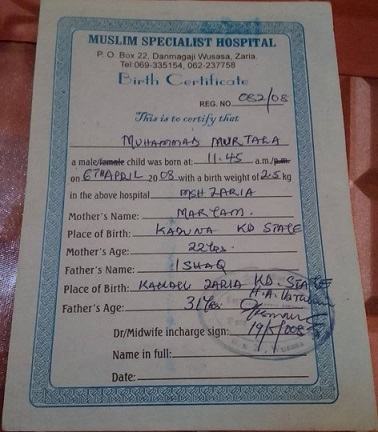 MUSLIM SPECIALIST HOSPITAL
P. O. Box 22, Danmagaji Wusasa, Zaria.
Tel: 069-335154, 062-237758
Birth Certificate
REG. NO. 082/08
This is to certify that
MUHAMMAD MURTARA
a male/female child was born at 11.45 a.m./p.m.
on 6TH APRIL 2008 with a birth weight of 2.5 kg
in the above hospital MSH ZARIA
Mother's Name: MARYAM.
Place of Birth: KADUNA KD STATE
Mother's Age: 22 Yrs.
Father's Name: ISHAQ
Place of Birth: ZARIA KD. STATE
Father's Age: 31 Yrs.
Dr/Midwife incharge sign: 19/5/008
Name in full:
Date: